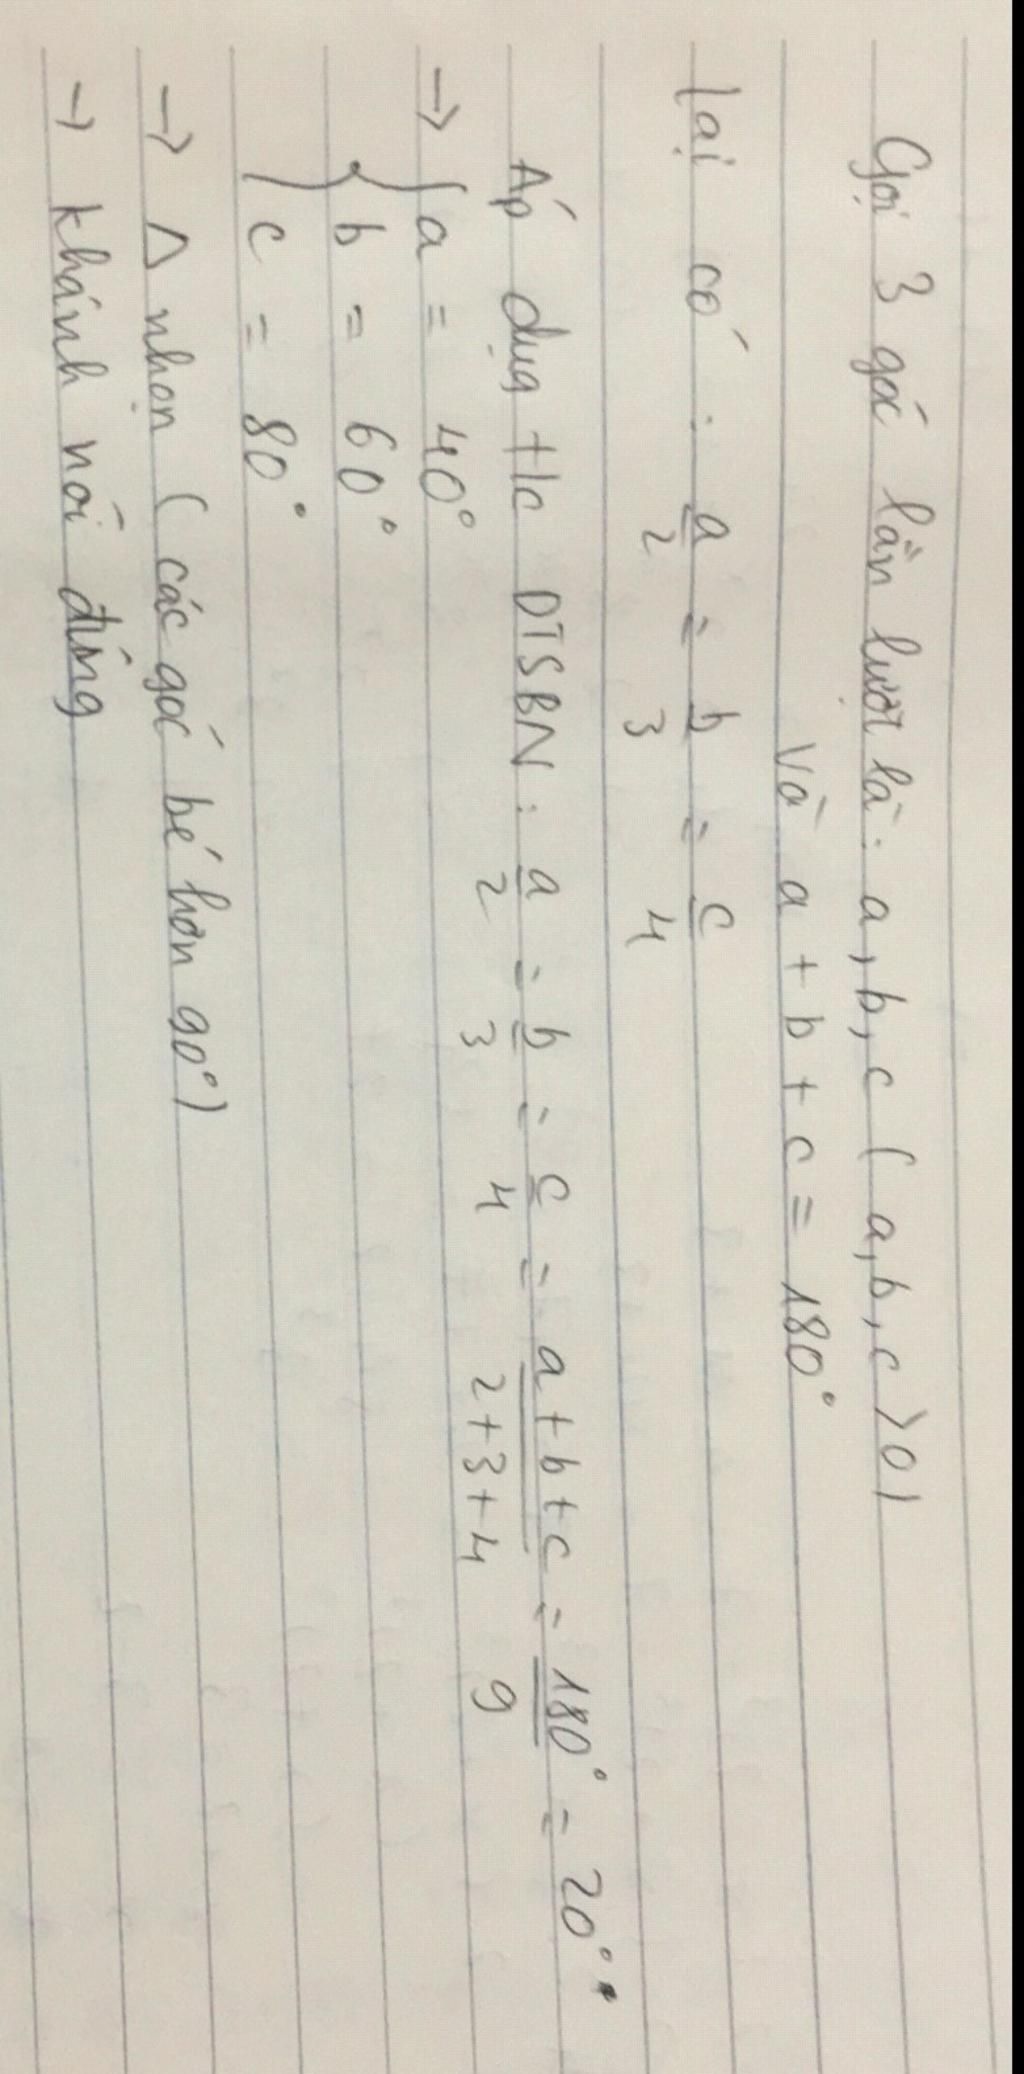 Gọi 3 góc lần lượt là: a, b, c ( a, b, c > 0)
Và a + b + c = 180°
lại có : a/2 = b/3 = c/4
Áp dụng t/c DTSBN : a/2 = b/3 = c/4 = a+b+c/2+3+4 = 180°/9 = 20°
→ { a = 40°
b = 60°
c = 80°
→ Δ nhọn ( các góc bé hơn 90°)
→ khánh nói đúng